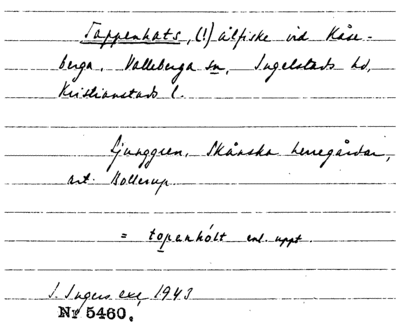 Tappenhats, (!) ålfiske vid Kåse-
berga, Valleberga sn, Ingelstads hd,
Kristianstads l.
Ljunggren, Skånska herregårdar,
art. Bollerup
= topenhólt enl. uppt.
I. Ingers exc. 1943
Nr 5460.